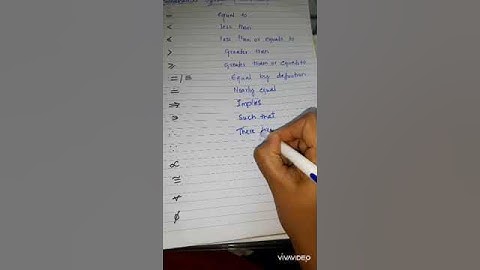 = Equal to
< less than
≤ less than or equals to
> Greater than
≥ Greater than or equals to
=|≡ Equal by definition
Nearly equal
⇒ Implies
∋ Such that
∴ There fore
∵
∝
≅
∅
VIVAVIDEO